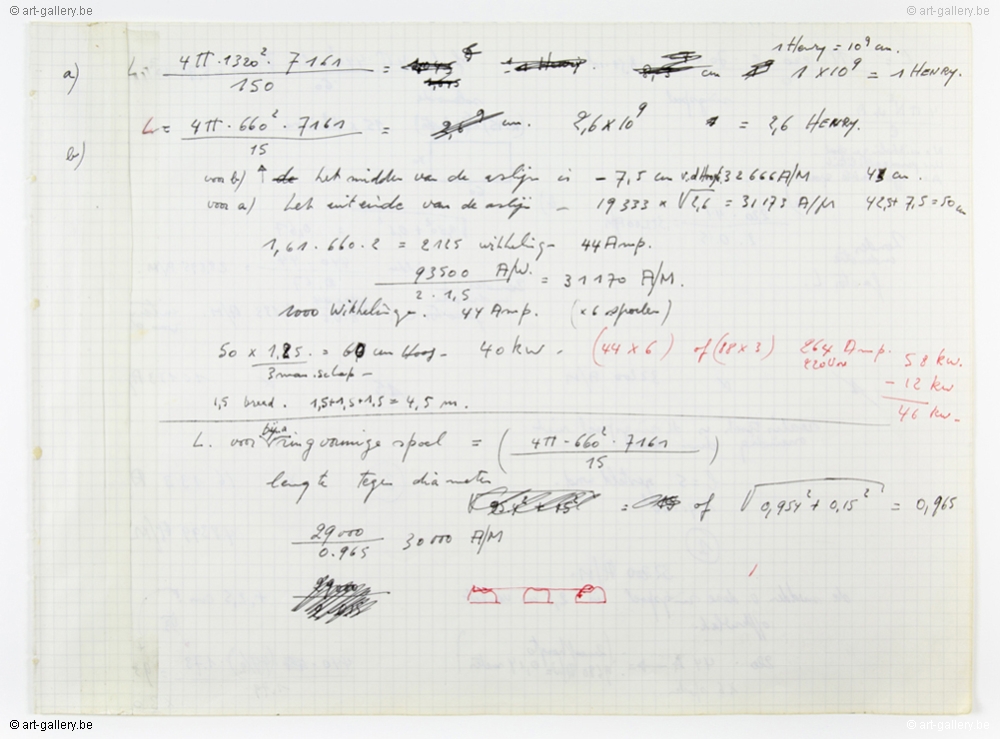 © art-gallery.be © art-gallery.be
1 Henry = 10⁹ cm.
a) L = 4π · 1320² · 7161 / 150 = cm 1 × 10⁹ = 1 HENRY.
b) L = 4π · 660² · 7161 / 15 = cm. 2,6 × 10⁹ = 2,6 HENRY.
voor b) ↑ het midden van de aslijn is – 7,5 cm 32666 A/M cm.
voor a) het uiteinde van de aslijn – 19333 × √2,6 = 31173 A/M 42,5 + 7,5 = 50 cm
1,61 · 660 · 2 = 2125 wikkeling – 44 Amp.
93500 A/W. / 2 · 1,5 = 31170 A/M.
1000 Wikkelingen. 44 Amp. (× 6 spoelen)
50 × 1,25. = 60 cm Hoog – 40 kw – (44 × 6) of (88 × 3) 264 Amp. 58 kw.
3 man. schap – 220 Volt – 12 kw
1,5 breed. 1,5+1,5+1,5 = 4,5 m. 46 kw –
L. voor bijna ringvormige spoel = ( 4π – 660² · 7161 / 15 )
lengte tegen diameter
= of √0,954² + 0,15² = 0,965
29000 / 0.965 30000 A/M
© art-gallery.be © art-gallery.be